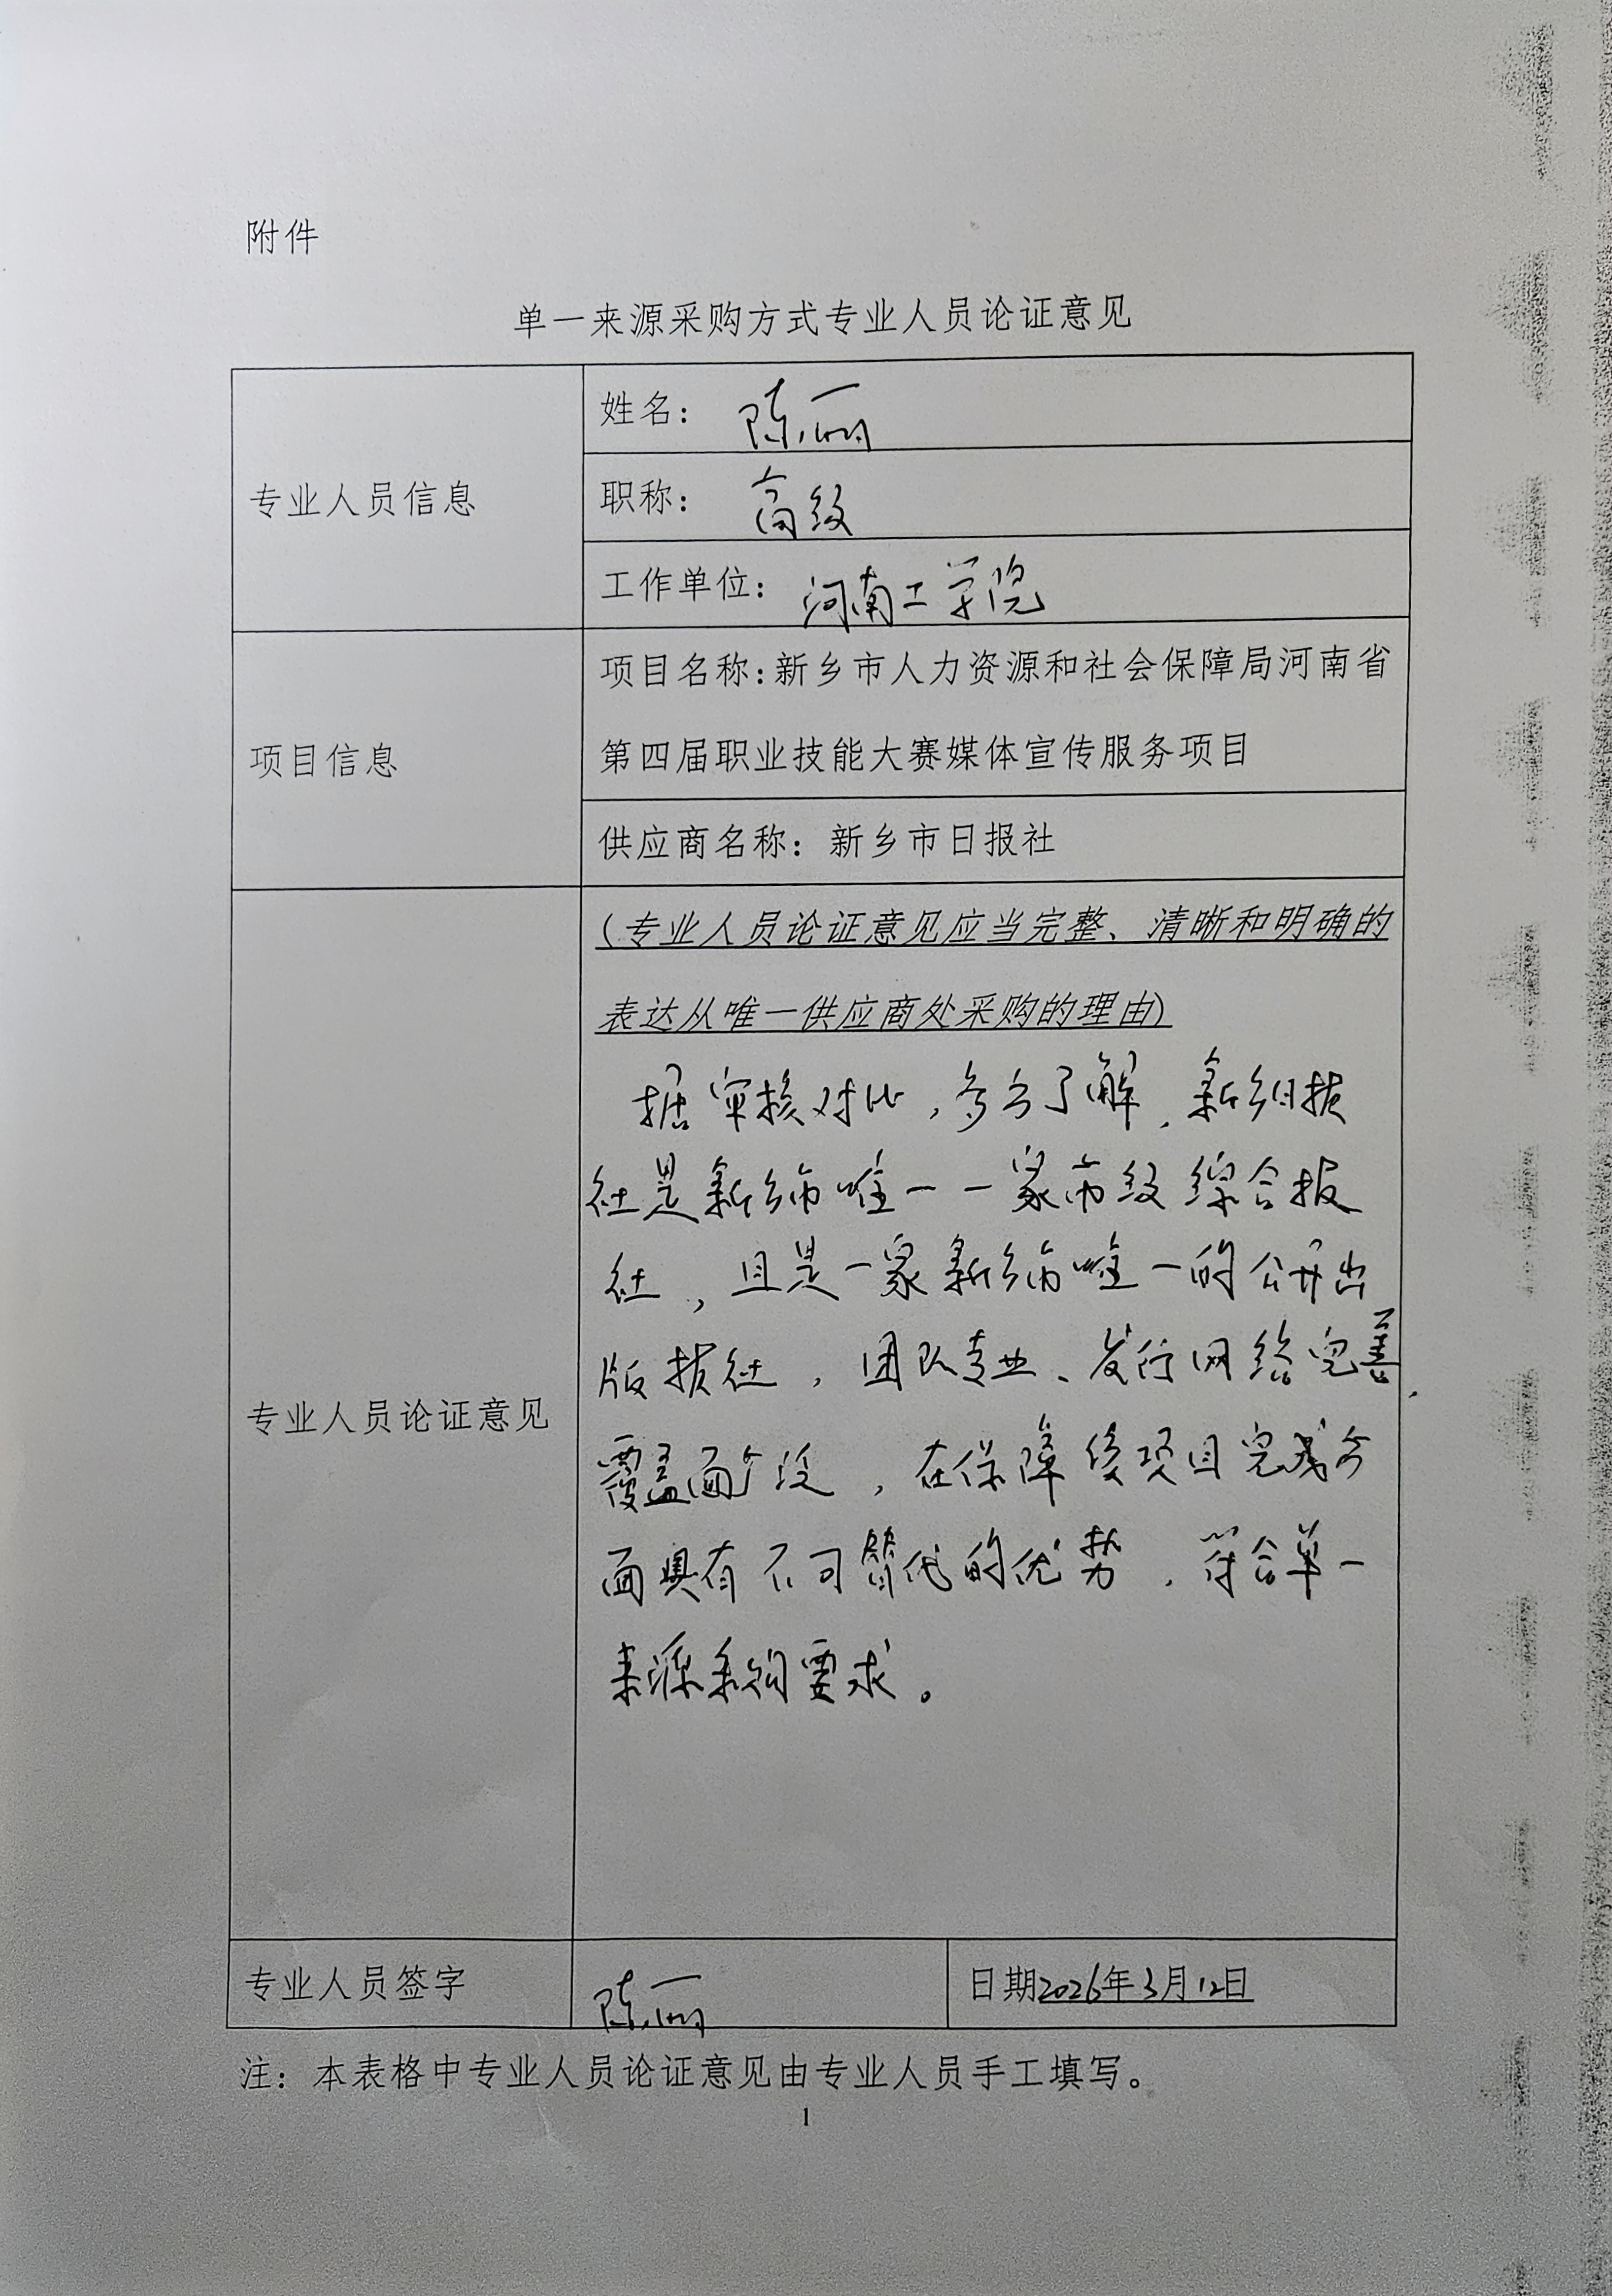 附件
单一来源采购方式专业人员论证意见
专业人员信息
姓名：陈丽
职称：高级
工作单位：河南工学院
项目信息
项目名称：新乡市人力资源和社会保障局河南省
第四届职业技能大赛媒体宣传服务项目
供应商名称：新乡市日报社
专业人员论证意见
（专业人员论证意见应当完整、清晰和明确的
表达从唯一供应商处采购的理由）
据审核对比，多方了解，新乡日报
社是新乡市唯一一家市级综合报
社，且是一家新乡市唯一的公开出
版报社，团队专业、发行网络完善，
覆盖面广泛，在保障该项目完成方
面具有不可替代的优势，符合单一
来源采购要求。
专业人员签字
陈丽
日期2026年3月12日
注：本表格中专业人员论证意见由专业人员手工填写。
1